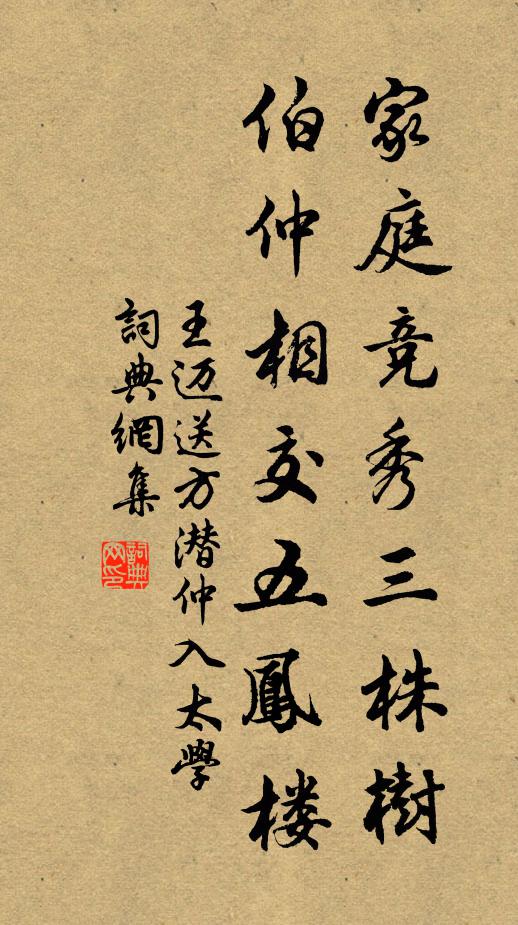 家庭竞秀三株樹
伯仲相交五鳳楼
王迈送方潜仲入太學
詞典網集
詞典網印